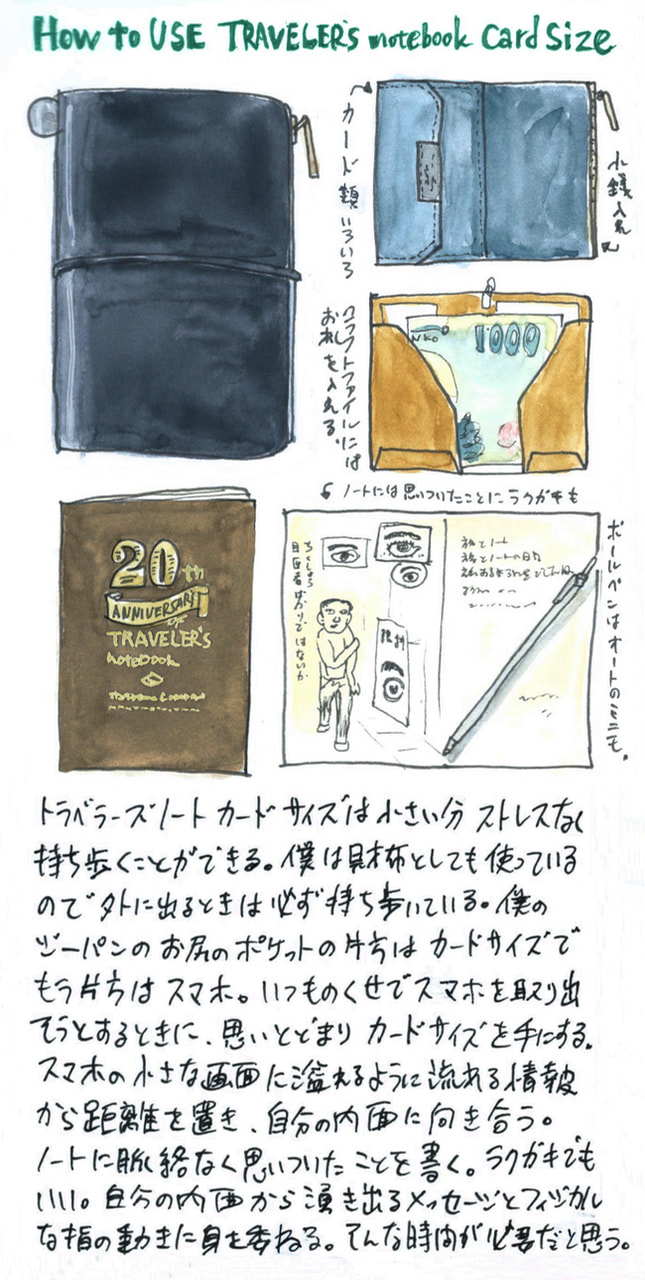 How to USE TRAVELER'S notebook Card Size
カード類いろいろ
小銭入れ
クラフトファイルには
お札を入れる。
1000
ノートには思いついたことにラクガキも
20th
ANNIVERSARY
OF
TRAVELER'S
notebook
ボールペンはオートのミニも。
トラベラーズノート カードサイズは小さい分 ストレスなく
持ち歩くことができる。僕は財布としても使っている
ので外に出るときは必ず持ち歩いている。僕の
ジーパンのお尻のポケットの片方は カードサイズで
もう片方は スマホ。いつものくせでスマホを取り出
そうとするときに、思いとどまり カードサイズを手にする。
スマホの小さな画面に溢れるように流れる情報
から距離を置き、自分の内面に向き合う。
ノートに脈絡なく思いついたことを書く。ラクガキでも
いい。自分の内面から湧き出るメッセージとフィジカル
な指の動きに身を委ねる。そんな時間が必要だと思う。